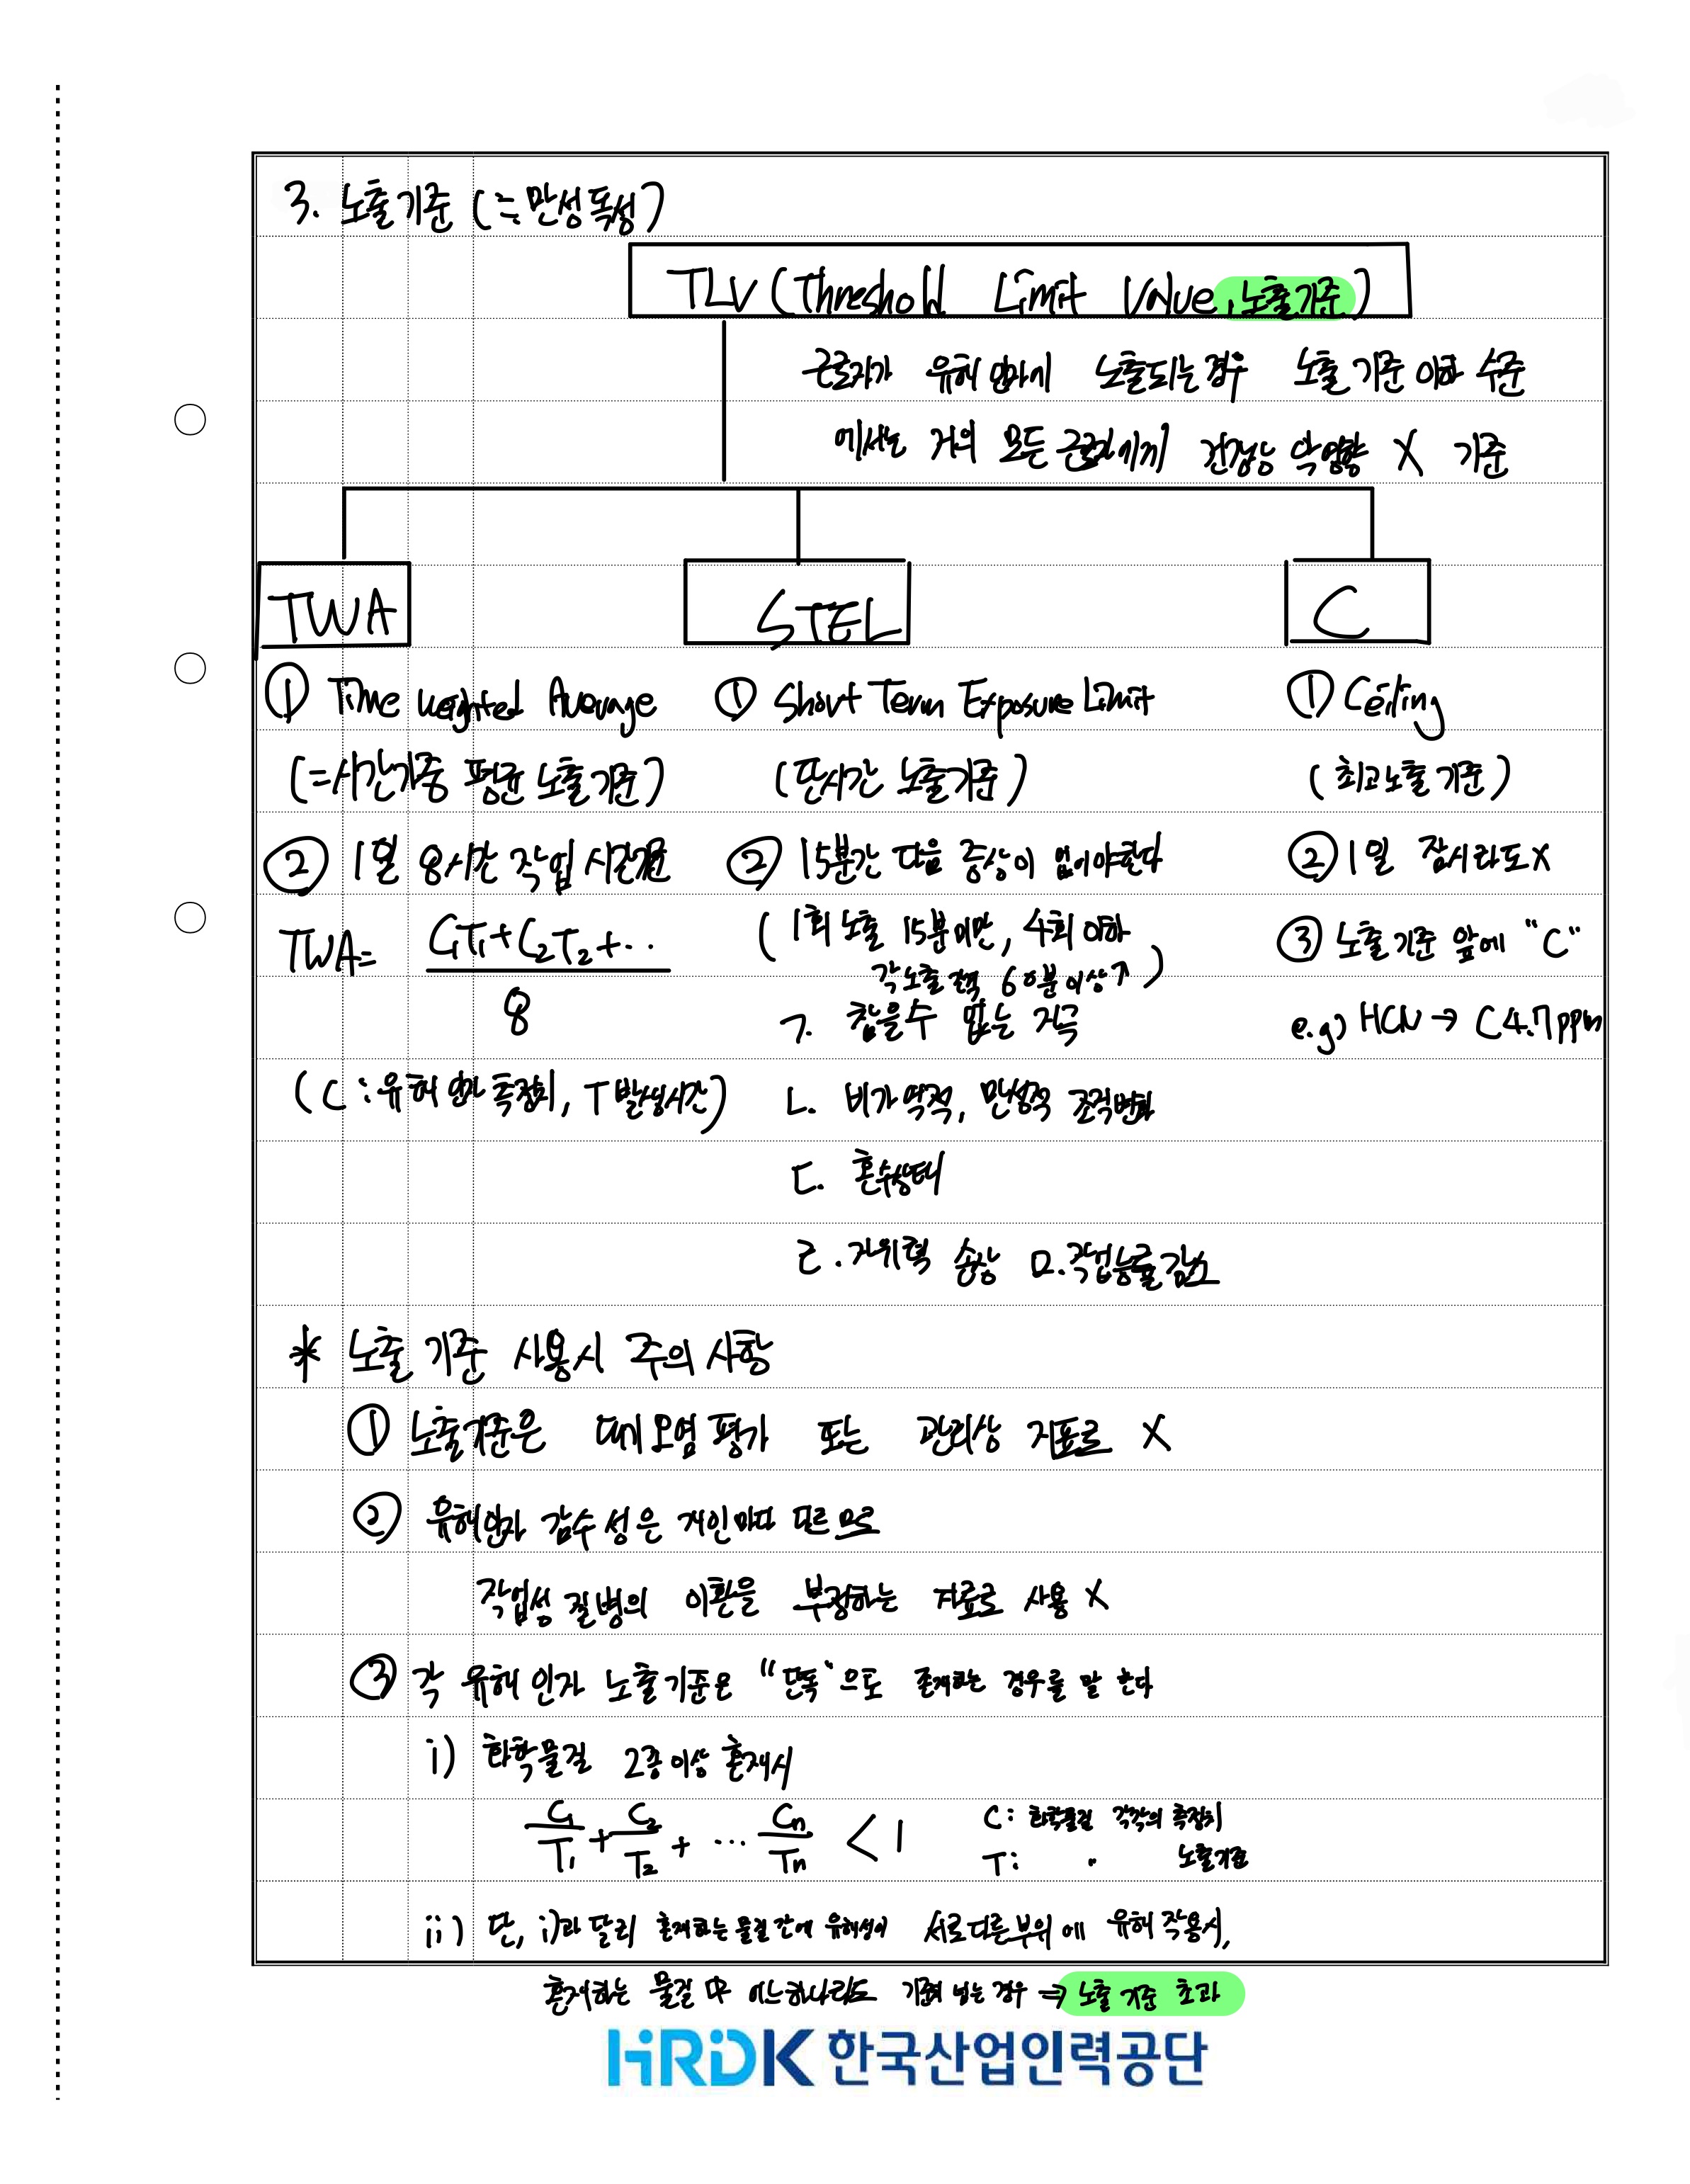 3. 노출기준 (= 만성독성)
TLV (Threshold Limit Value, 노출기준)
근로자가 유해인자에 노출되는 경우 노출기준 이하 수준
에서는 거의 모든 근로자에게 건강상 악영향 X 기준
TWA STEL C
① Time Weighted Average ① Short Term Exposure Limit ① Ceiling
(=시간가중 평균 노출기준) (단시간 노출기준) (최고노출기준)
② 1일 8시간 작업 시간기준 ② 15분간 다음 증상이 없어야한다 ② 1일 잠시라도 X
TWA= C₁T₁+C₂T₂+·· / 8 (1회 노출 15분미만, 4회 이하 ③ 노출기준 앞에 "C"
각 노출 간격 60분이상)
ㄱ. 참을수 없는 자극 e.g) HCN → C 4.7ppm
(C : 유해인자 측정치, T 발생시간) ㄴ. 비가역적, 만성적 조직변화
ㄷ. 혼수상태
ㄹ. 자위력 손상 ㅁ. 작업능률감소
* 노출기준 사용시 주의사항
① 노출기준은 대기오염 평가 또는 관리상 지표로 X
② 유해인자 감수성은 개인마다 다르므로
작업성 질병의 이환을 부정하는 자료로 사용 X
③ 각 유해인자 노출기준은 "단독"으로 존재하는 경우를 말한다
i) 화학물질 2종이상 혼재시
C₁/T₁ + C₂/T₂ + ··· Cn/Tn < 1 C: 화학물질 각각의 측정치
T: 〃 노출기준
ii) 단, i)과 달리 혼재하는 물질 간에 유해성이 서로 다른 부위에 유해 작용시,
혼재하는 물질 中 어느하나라도 기준에 넘는 경우 ⇒ 노출기준 초과
HRDK 한국산업인력공단